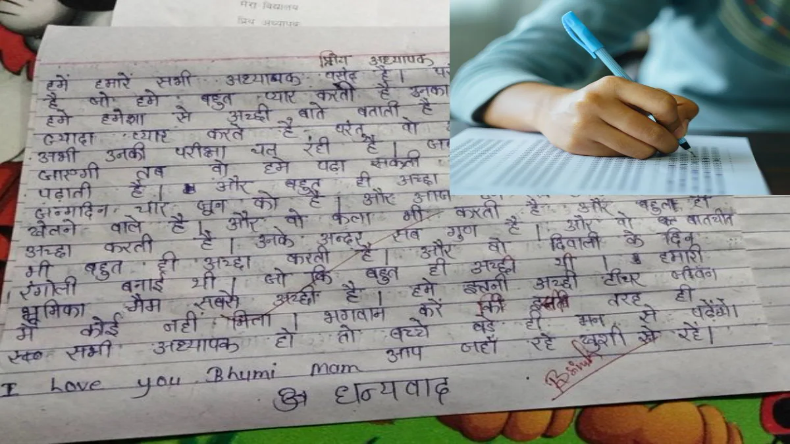 मेरा विद्यालय
प्रिय अध्यापक
प्रिय अध्यापक
हमें हमारे सभी अध्यापक पसंद है।
है जो हमे बहुत प्यार करती है उनका
हमे हमेशा से अच्छी बाते बताती है
ज़्यादा प्यार करते है परंतु वो
अभी उनकी परीक्षा चल रही है।
जाएगी तब वो हमे पढ़ा सकती
पढ़ाती है। और बहुत ही अच्छा
जन्मदिन चार जून को है। और आज
खेलने वाले है। और वो कला भी करती है और बहुत ही
अच्छा करती है। उनके अन्दर सब गुण है। और वो बातचीत
भी बहुत ही अच्छा करती है। और वो दिवाली के दिन
रंगोली बनाई थी। जो कि बहुत ही अच्छी थी। हमारी
भूमिका मैम सबसे अच्छी है। हमे इतनी अच्छी टीचर जीवन
मे कोई नहीं मिला। भगवान करे की इसी तरह ही
सभी अध्यापक हो तो बच्चे बड़े ही मन से पढ़ेंगे।
I Love you Bhumi Mam आप जहाँ रहें खुशी से रहें।
धन्यवाद